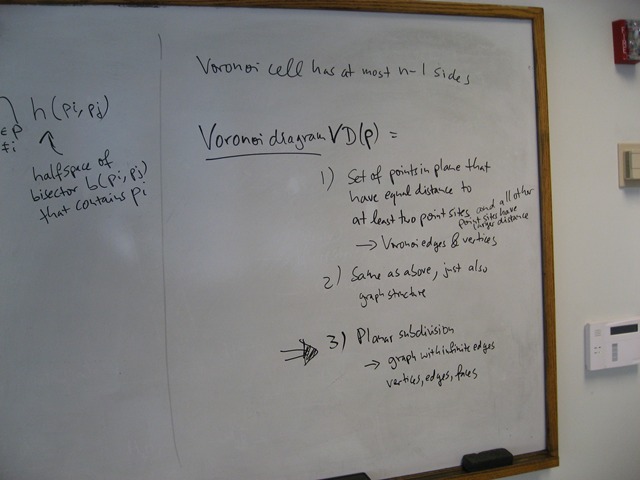 h(pi, pj)
∈ P
≠ i
halfspace of
bisector b(pi, pj)
that contains pi
Voronoi cell has at most n-1 sides
Voronoi diagram VD(P) =
1) Set of points in plane that
have equal distance to
at least two point sites, and all other
point sites have
larger distance
→ Voronoi edges & vertices
2) Same as above, just also
graph structure
3) Planar subdivision
→ graph with infinite edges
vertices, edges, faces